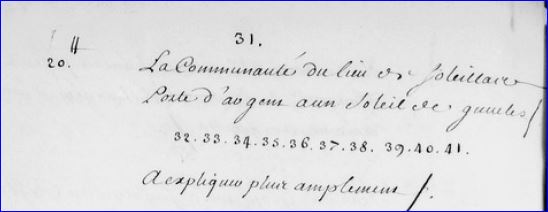 31.
20.ₗₗ
La Communauté du lieu de Soleillave
Porte d'argent a un Soleil de gueules/
32. 33. 34. 35. 36. 37. 38. 39. 40. 41.
A expliquer plus amplement /.